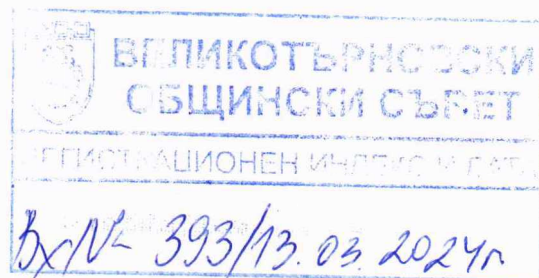 ВЕЛИКОТЪРНОВСКИ
ОБЩИНСКИ СЪВЕТ
РЕГИСТРАЦИОНЕН ИНДЕКС И ДАТА
Вх№ 393/13.03.2024г